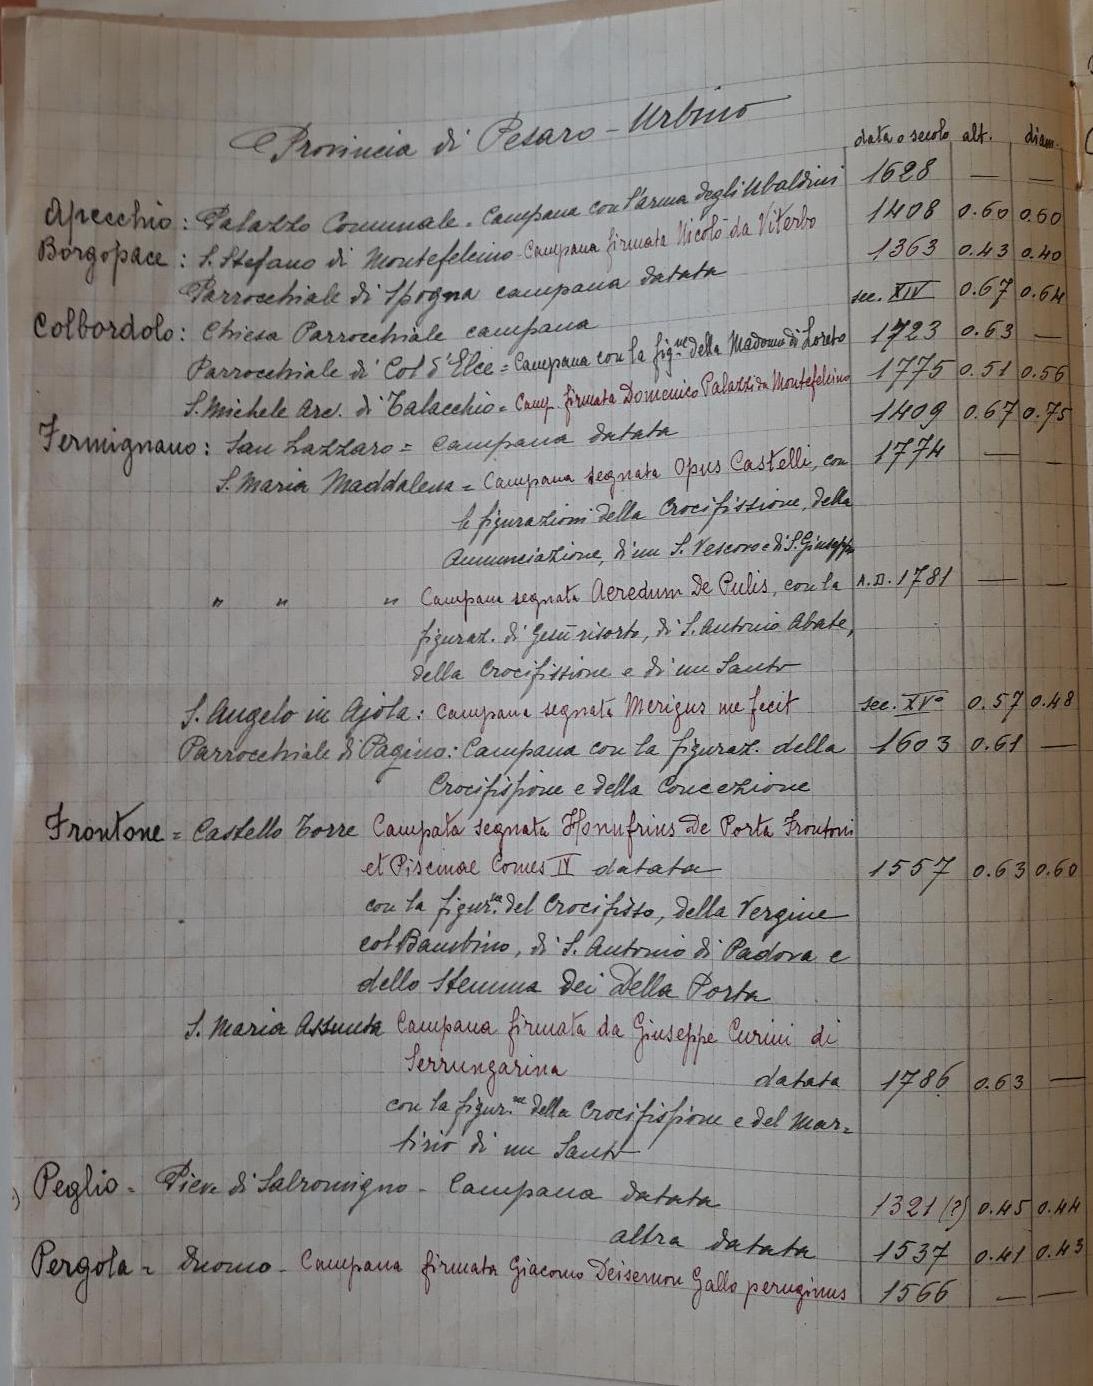 Provincia di Pesaro-Urbino
data o secolo alt. diam.
Apecchio: Palazzo Comunale - Campana con l'arma degli Ubaldini 1628 — —
Borgopace: S. Stefano di Montefelcino - Campana firmata Nicolò da Viterbo 1408 0.60 0.60
Parrocchiale di Spogna campana datata 1363 0.43 0.40
Colbordolo: Chiesa Parrocchiale campana sec. XIV 0.67 0.64
Parrocchiale di Col d'Elce = Campana con la fig.ne della Madonna di Loreto 1723 0.63 —
S. Michele Arc. di Talacchio = Camp. firmata Domenico Palazzi da Montefelcino 1775 0.51 0.56
Fermignano: San Lazzaro = campana datata 1409 0.67 0.75
S. Maria Maddalena = Campana segnata Opus Castelli, con 1774 — —
le figurazioni della Crocifissione, della
Annunciazione, di un S. Vescovo e di S. Giuseppe
" " " Campana segnata Aeredum De Pulis, con la A.D. 1781 — —
figuraz. di Gesù risorto, di S. Antonio Abate,
della Crocifissione e di un Santo
S. Angelo in Ajola: Campana segnata Merigus me fecit sec. XV° 0.57 0.48
Parrocchiale di Pagino: Campana con la figuraz. della 1603 0.61 —
Crocifissione e della Concezione
Frontone = Castello Torre Campata segnata Honufrius De Porta Frontoni
et Piscinae Comes IV datata 1557 0.63 0.60
con la figur.ne del Crocifisso, della Vergine
col Bambino, di S. Antonio di Padova e
dello Stemma dei Della Porta
S. Maria Assunta Campana firmata da Giuseppe Curini di
Serrungarina datata 1786 0.63 —
con la figur.ne della Crocifissione e del Mar=
tirio di un Santo
Peglio = Pieve di Salromigno - Campana datata 1321 (?) 0.45 0.44
altra datata 1537 0.41 0.43
Pergola = Duomo - Campana firmata Giacomo Deisemon Gallo peruginus 1566 — —